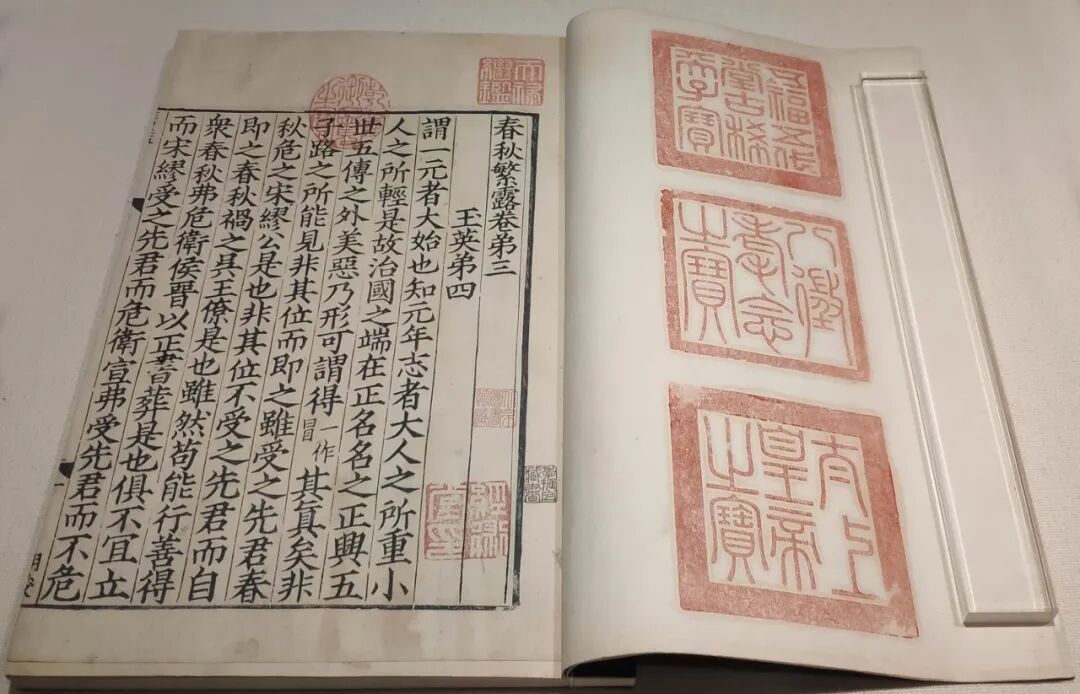 五福五代
堂古稀
天子寶
八徵
耄念
之寶
太上
皇帝
之寶
天祿
繼鑑
乾隆御覽之寶
春秋繁露卷弟三
玉英弟四
謂一元者大始也知元年志者大人之所重小
人之所輕是故治國之端在正名名之正興五
世五傳之外美惡乃形可謂得一作冒其真矣非
子路之所能見非其位而即之雖受之先君春
秋危之宋繆公是也非其位不受之先君而自
即之春秋禍之吳王僚是也雖然苟能行善得
衆春秋弗危衛侯晉以正書葬是也俱不宜立
而宋繆受之先君而危衛宣弗受先君而不危